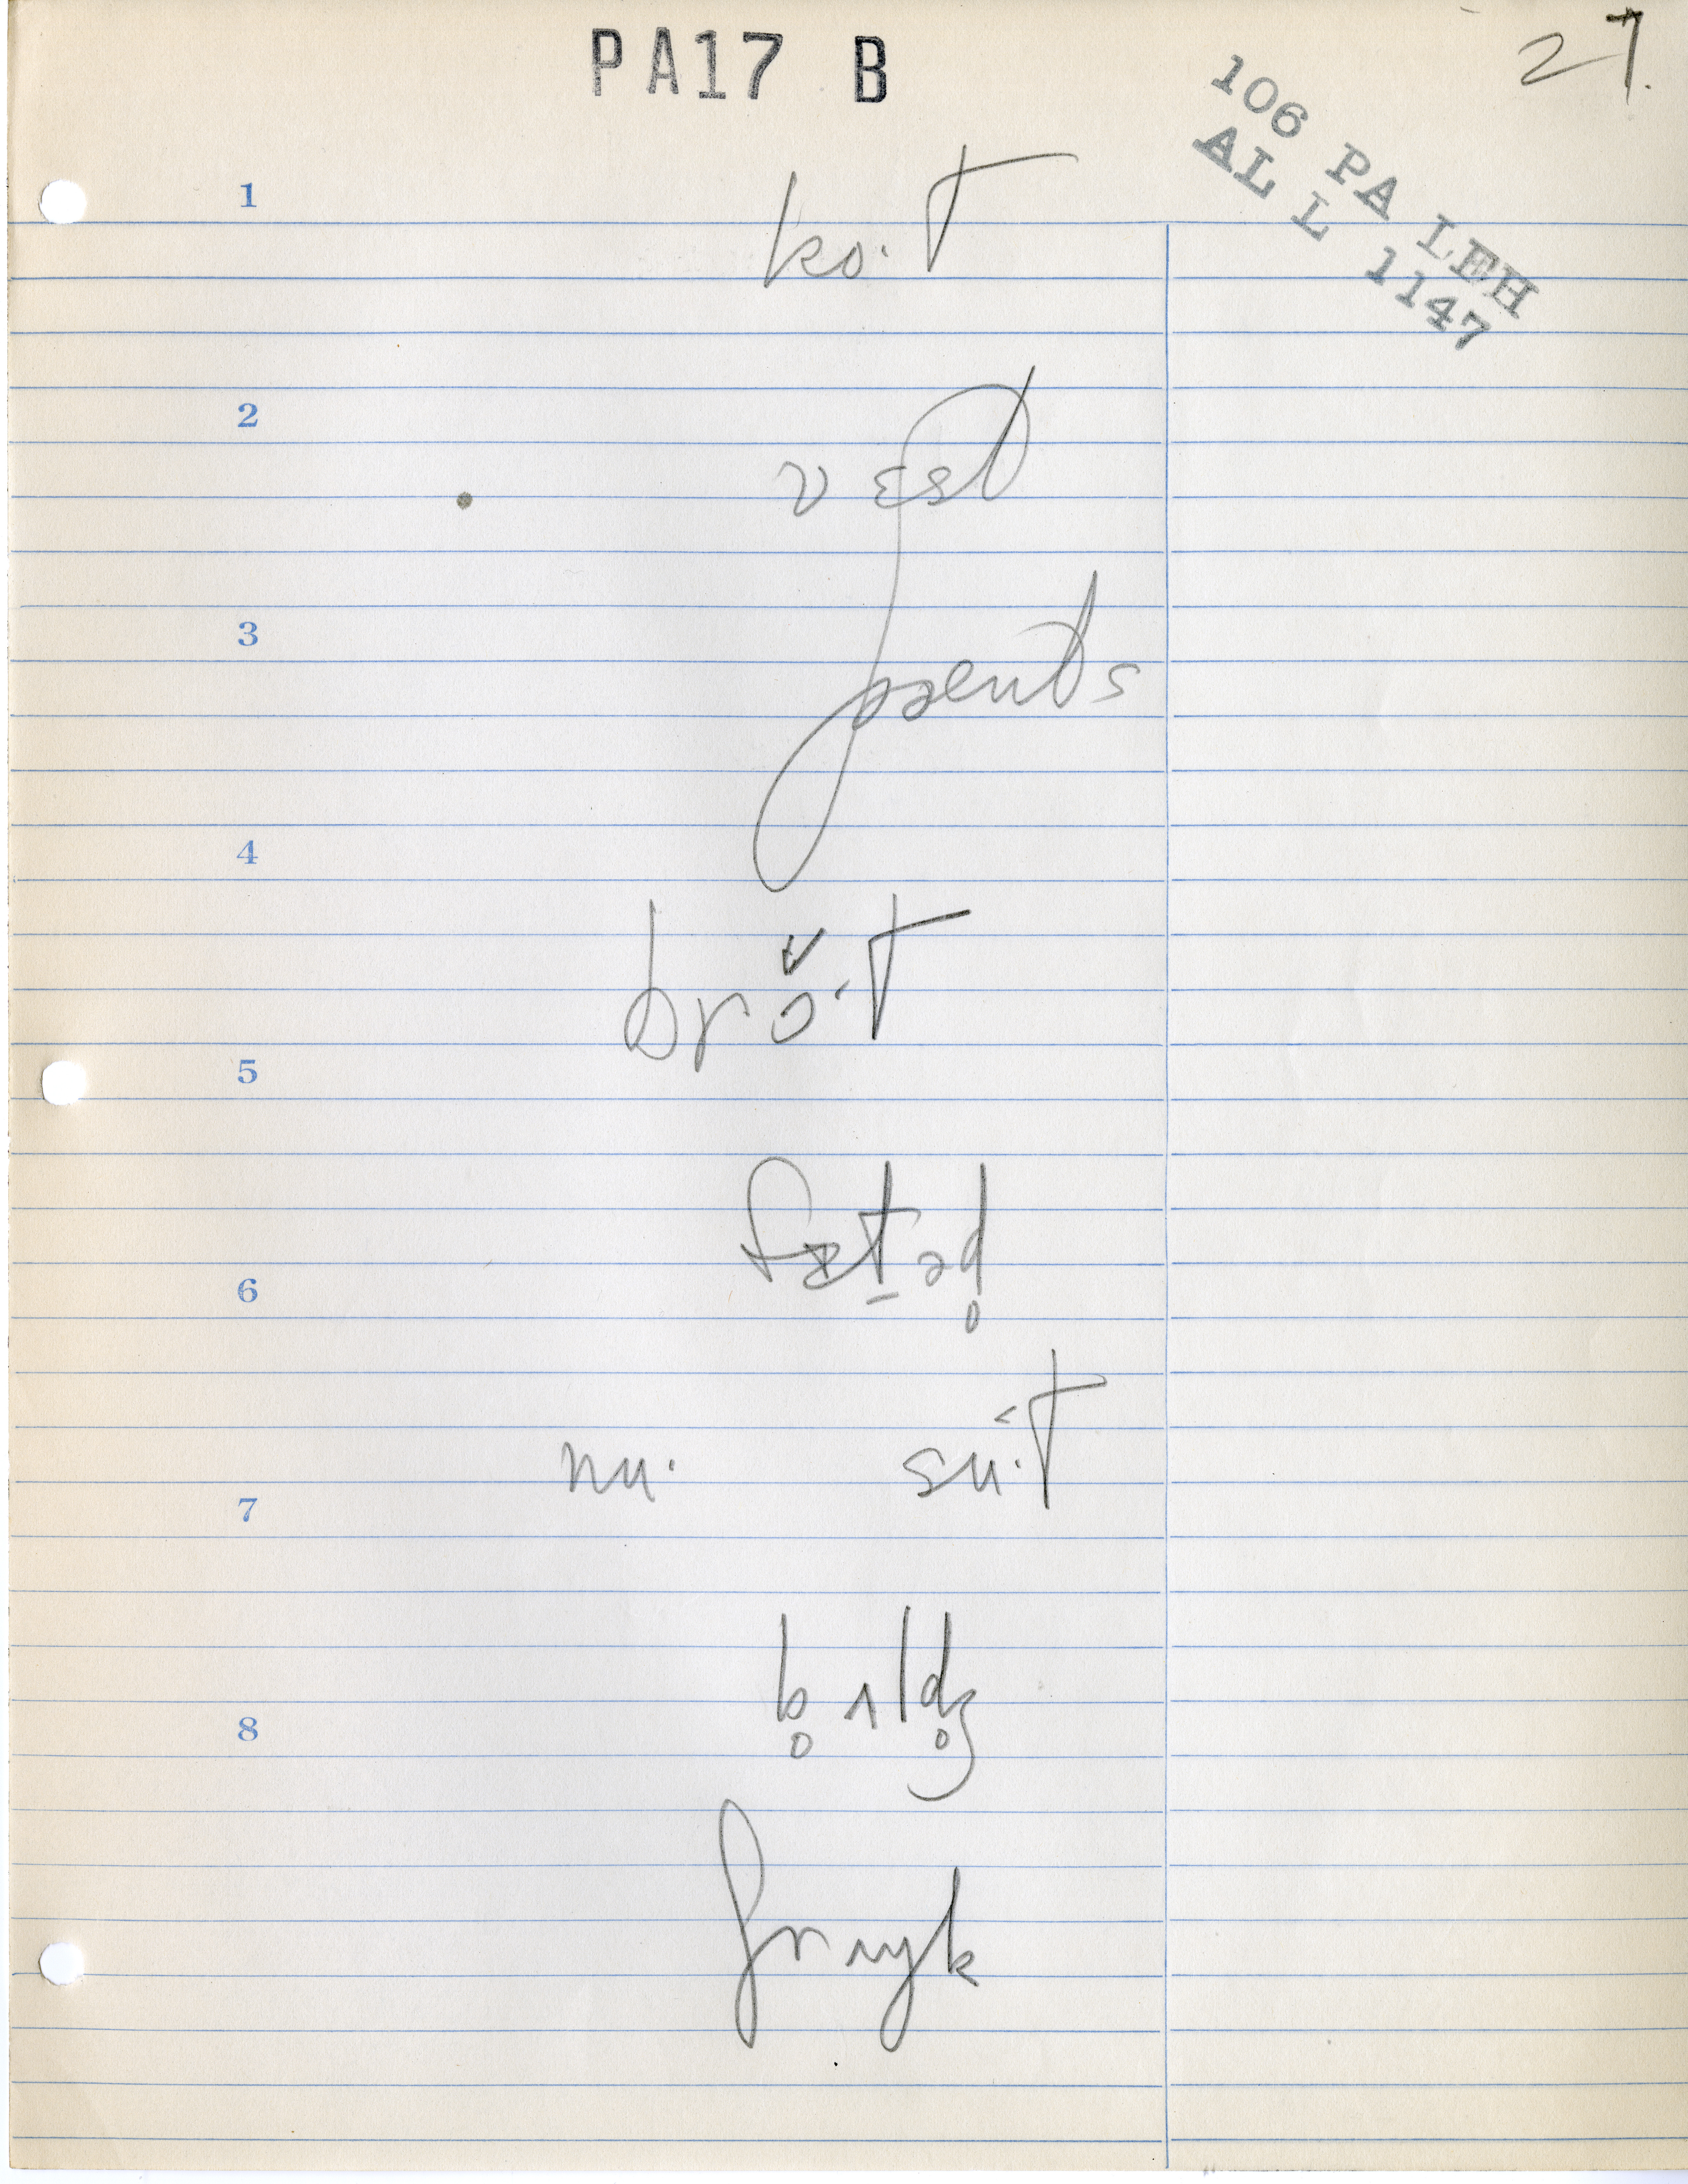 PA17 B
27.
106 PA LEH
AL L 1147
1
ko·T
2
vɛst
3
pænts
4
brɔ̌·T
5
6
fɪt̠əd̥
nu· su˂·T
7
b̥ʌld̥ʒ
8
ʃrɪŋk